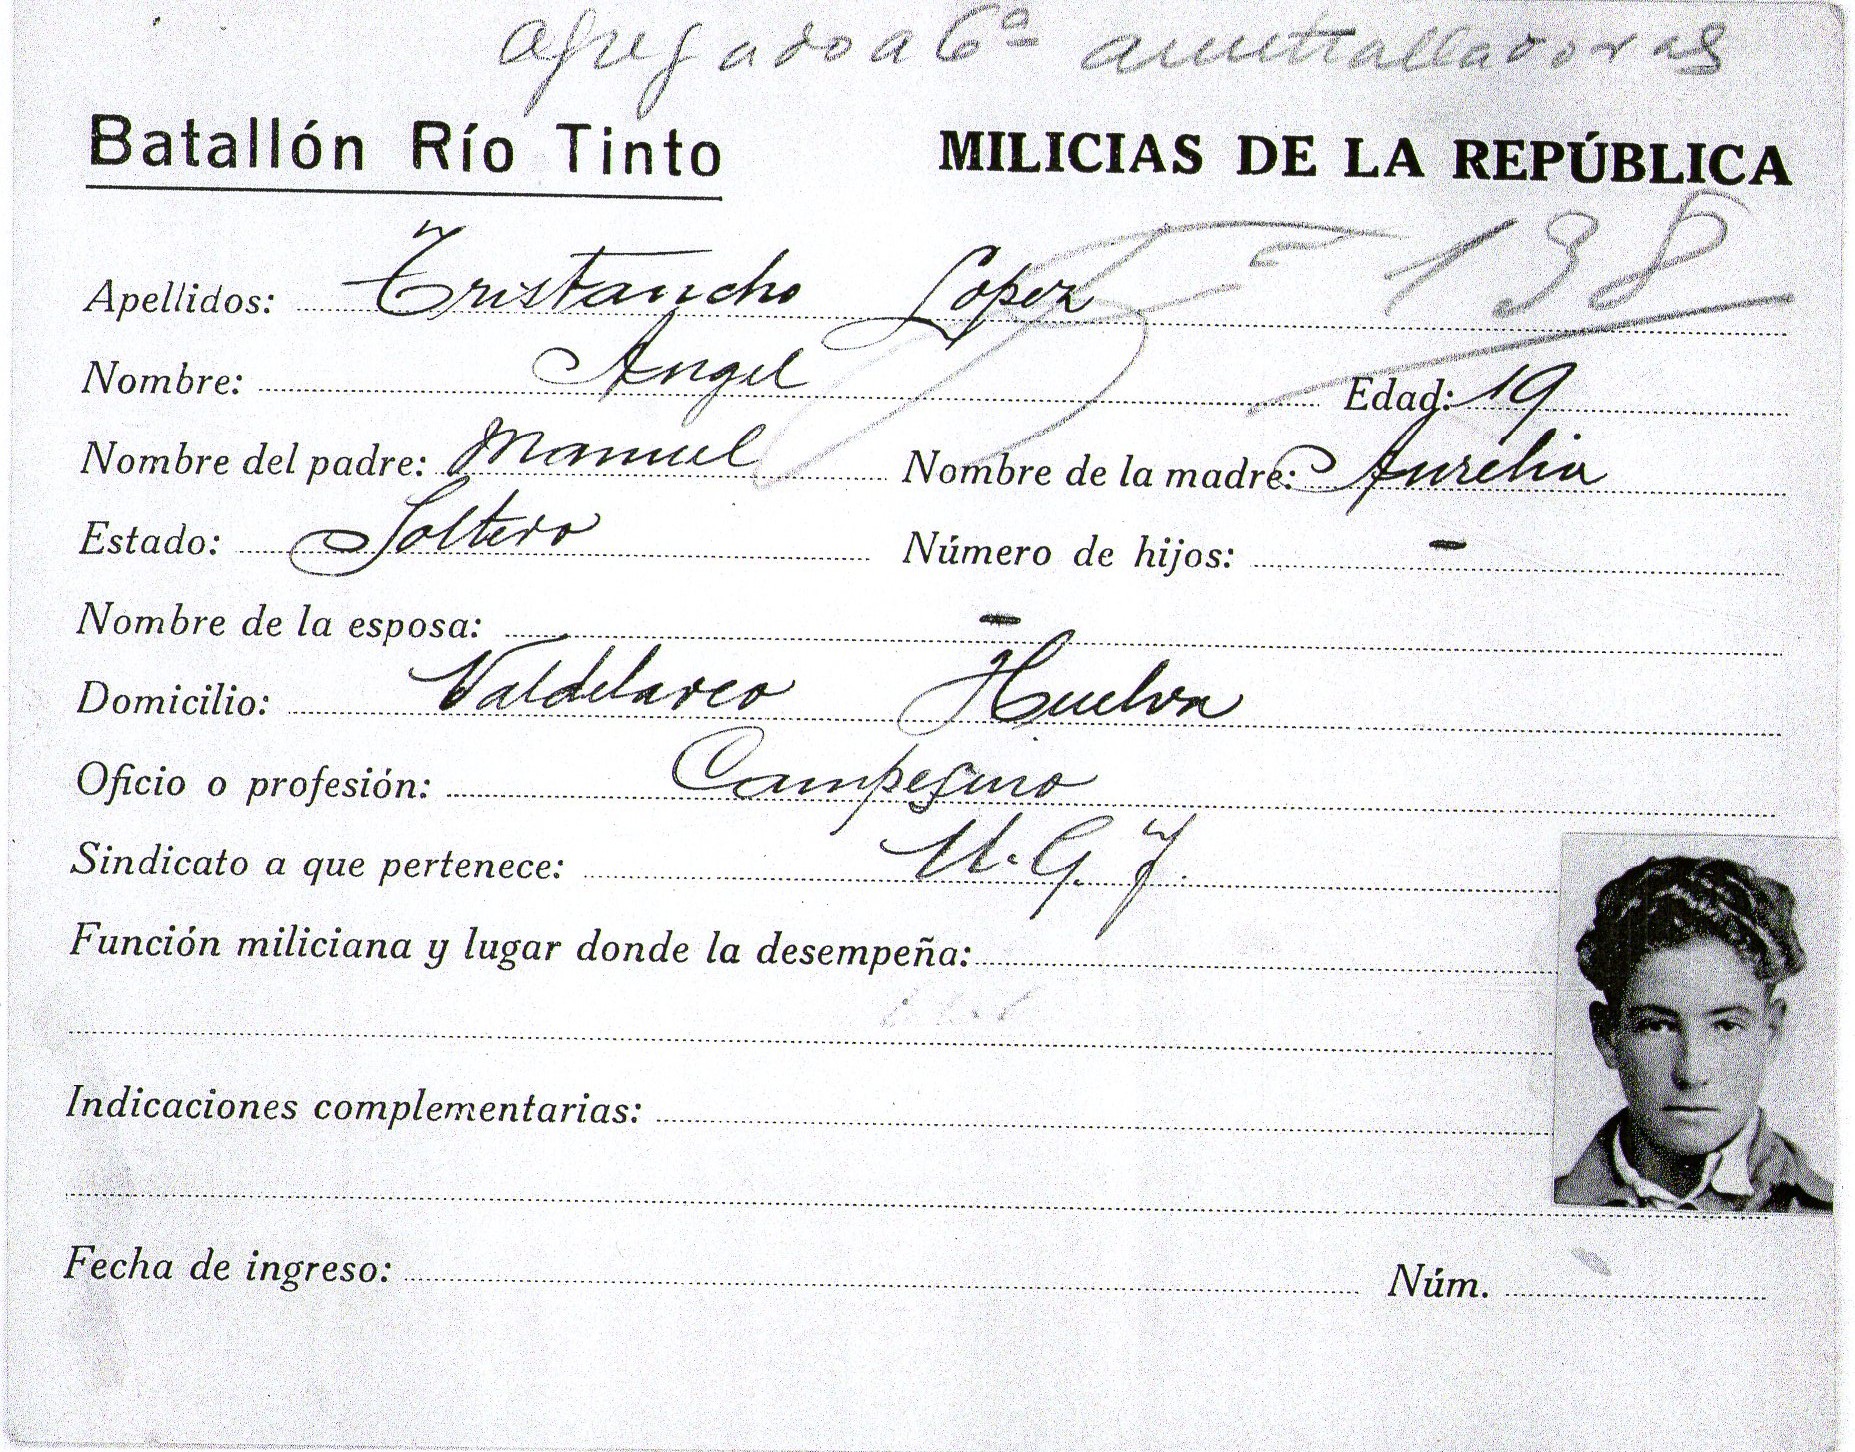 agregado a 6ª ametralladoras
Batallón Río Tinto MILICIAS DE LA REPÚBLICA
138
Apellidos: Tristancho Lopez
Nombre: Angel Edad: 19
Nombre del padre: Manuel Nombre de la madre: Aurelia
Estado: Soltero Número de hijos: -
Nombre de la esposa: -
Domicilio: Valdelarco Huelva
Oficio o profesión: Campesino
Sindicato a que pertenece: U.G.T.
Función miliciana y lugar donde la desempeña:
Indicaciones complementarias:
Fecha de ingreso: Núm.